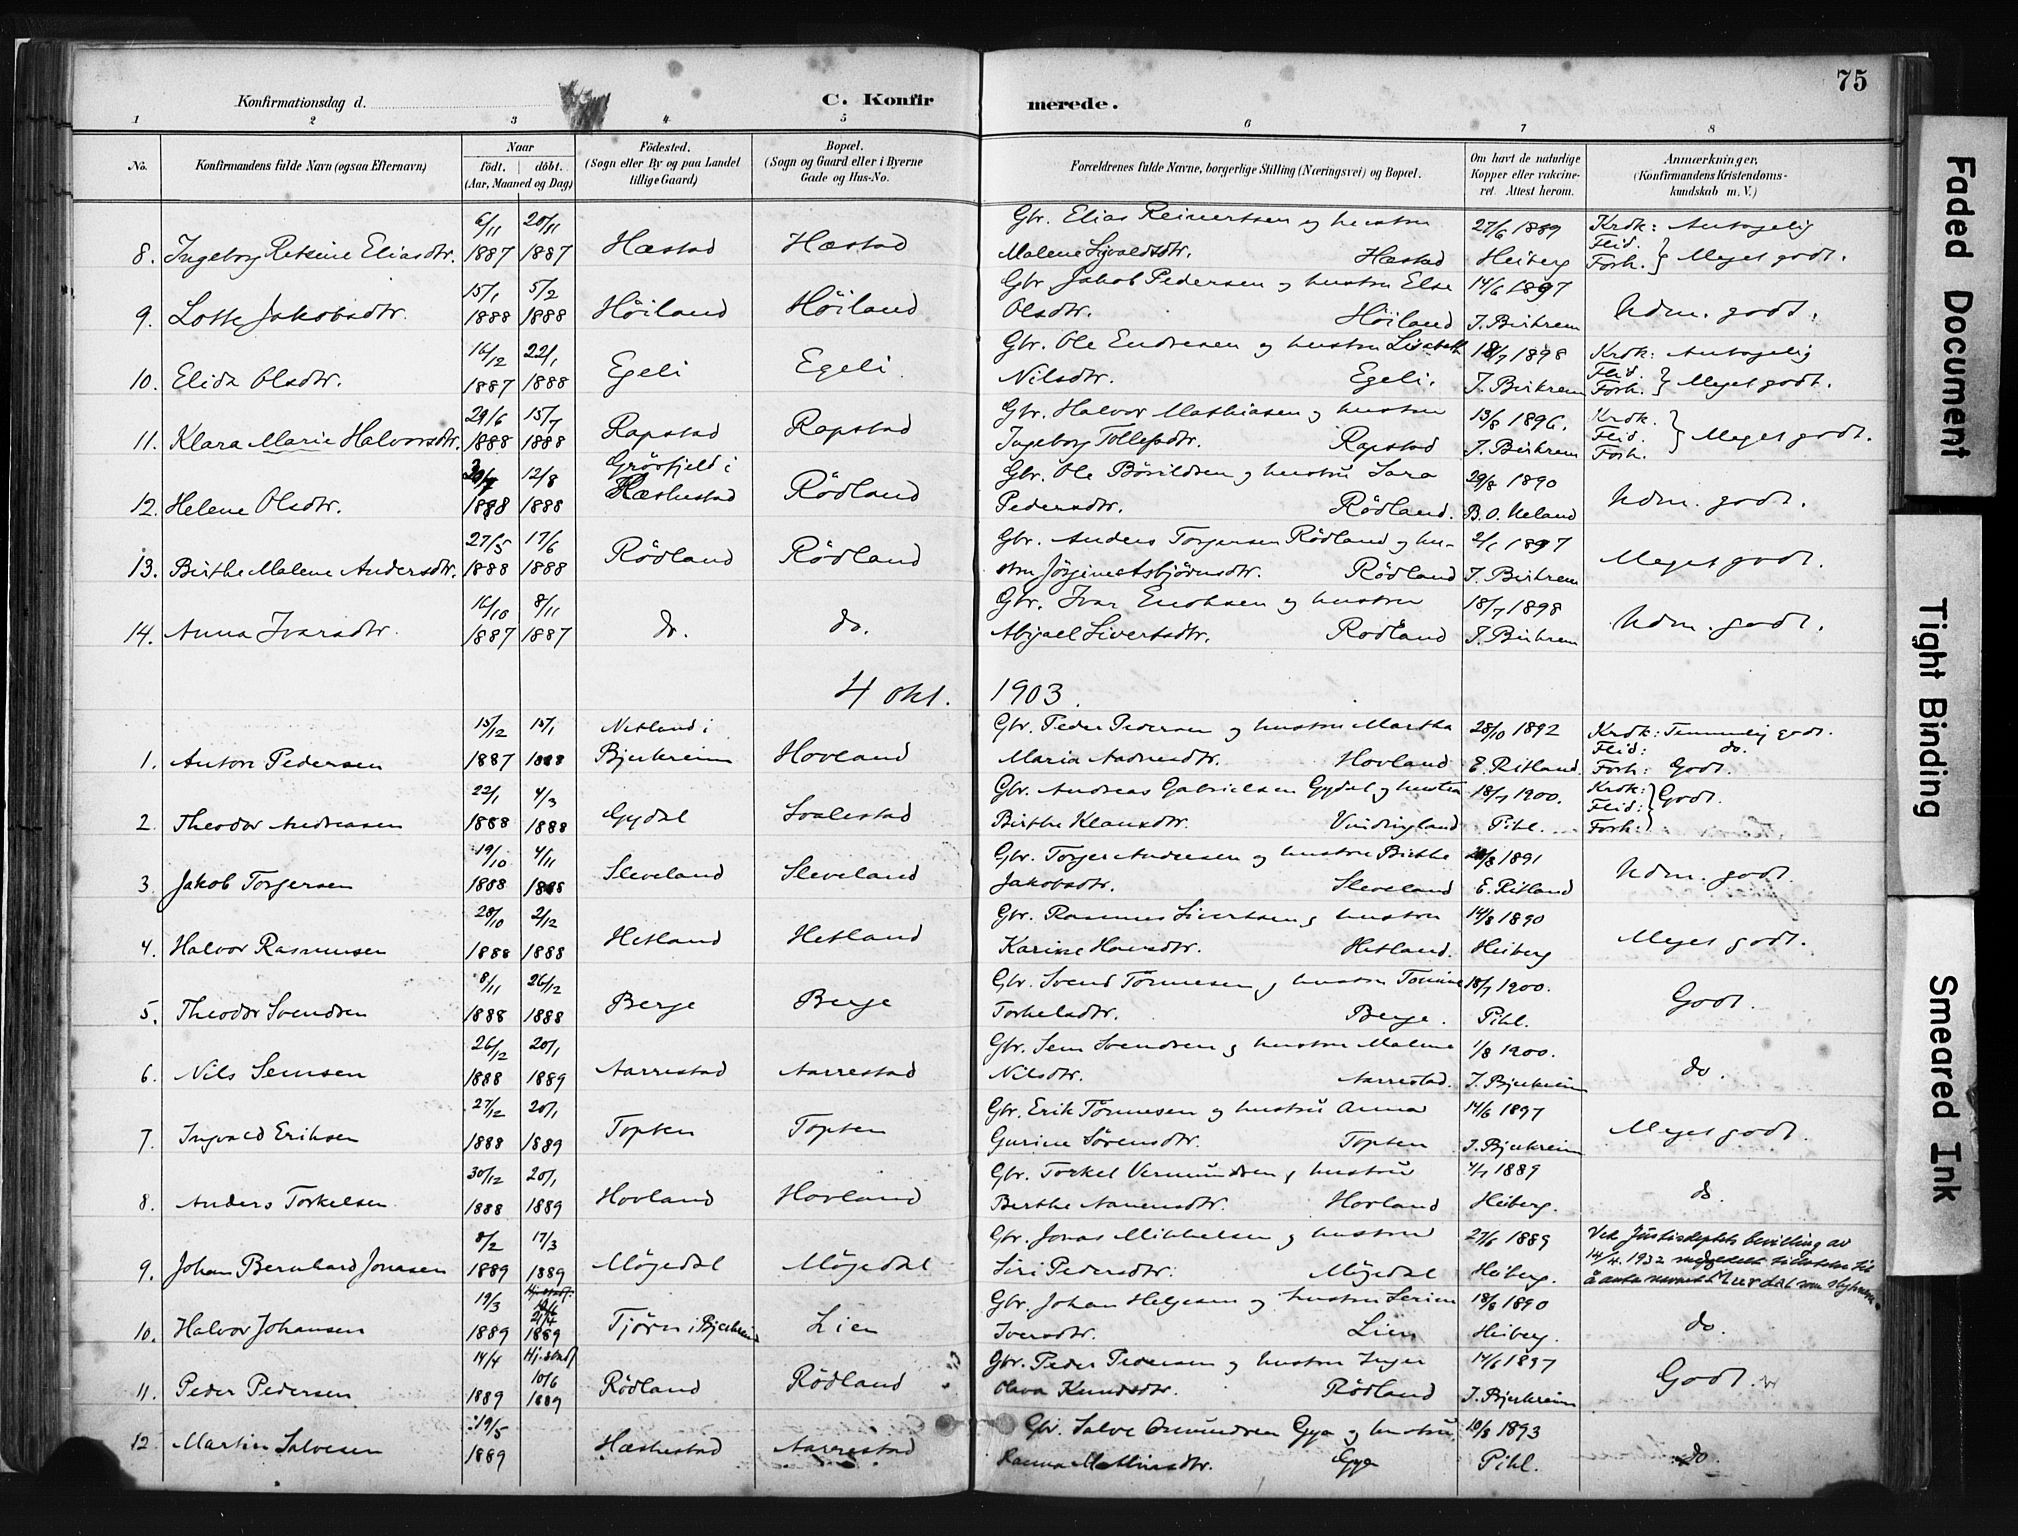 75
Konfirmationsdag d.
C. Konfirmerede.
1 2 3 4 5 6 7 8
No. Konfirmandens fulde Navn (ogsaa Efternavn) Naar Födt. döbt. (Aar, Maaned og Dag) Födested. (Sogn eller By og paa Landet tillige Gaard) Bopæl. (Sogn og Gaard eller i Byerne Gade og Hus-No. Forældrenes fulde Navne, borgerlige Stilling (Næringsvei) og Bopæl. Om havt de naturlige Kopper eller vakcineret. Attest herom. Anmærkninger, (Konfirmandens Kristendomskundskab m. V.)
6/11 20/11 Gbr. Elias Reinertsen og hustru 27/6 1889 Krdk: Antagelig
8. Ingeborg Retsine Eliasdtr. 1887 1887 Hæstad Hæstad Malene Sjvaldsdtr. Hæstad Heiberg Flid. Forh. } Meget godt.
15/1 5/2 Gbr. Jakob Pedersen og hustru Else 14/6 1897
9. Lotte Jakobsdtr. 1888 1888 Höiland Höiland Olsdtr. Höiland J. Birkrem Udm. godt.
16/12 22/1 Gbr. Ole Endresen og hustru Lisebeth 18/7 1898 Krdk: Antagelig
10. Elida Olsdtr. 1887 1888 Egeli Egeli. Nilsdtr. Egeli. J. Birkrem Flid. Forh. } Meget godt.
29/6 15/7 Gbr. Halvor Mathiasen og hustru 13/8 1896. Krdk.
11. Klara Marie Halvorsdtr. 1888 1888 Rapstad Rapstad Ingeborg Tollefsdtr. Rapstad J. Birkrem Flid. Forh. } Meget godt.
12/8 Grösfjeld i Gbr. Ole Bövildsen og hustru Sara 29/8 1890
12. Helene Olsdtr. 1888 1888 Hæskestad Rödland Pedersdtr. Rödland. B. O. Ueland Udm. godt.
27/5 17/6 Gbr. Anders Torgersen Rödland og hu- 2/1 1897
13. Birthe Malene Andersdtr. 1888 1888 Rödland Rödland stru Jörgine Asbjörnsdtr. Rödland J. Birkrem Meget godt.
16/10 8/11 Gbr. Ivar Enoksen og hustru 18/7 1898
14. Anna Ivarsdtr. 1887 1887 do. do. Abigael Sivertsdtr. Rodland J. Birkrem Udm. godt.
4 okt. 1903.
15/12 15/1 Netland i Gbr. Peder Pedersen og hustru Martha 28/10 1892 Krdk: Temmelig godt.
1. Anton Pedersen 1887 1888 Bjerkreim Hovland Maria Aadnesdtr. Hovland E. Ritland. Flid: do. Forh: Godt.
22/1 4/3 Gbr. Andreas Gabrielsen Gydal og hustru 18/7 1900. Krdk:
2. Theodor Andreasen 1888 1888 Gydal Svalestad Birthe Klausdtr. Vindingland Pihl. Flid: Forh: } Godt.
19/10 4/11 Gbr. Torger Andersen og hustru Birthe 1891
3. Jakob Torgersen 1888 1888 Sleveland Sleveland Jakobsdtr. Sleveland E. Ritland Udm. godt.
28/10 2/12 Gbr. Rasmus Sivertsen og hustru 14/8 1890
4. Halvor Rasmusen 1888 1888 Hetland Hetland Karine Hansdtr. Hetland. Heiberg Meget godt.
8/11 26/12 Gbr. Svend Tönnesen og hustru Tomine 18/7 1900.
5. Theodor Svendsen 1888 1888 Berge Berge Torkelsdtr. Berge. Pihl. Godt.
26/12 20/1 Gbr. Sem Svendsen og hustru Malene 1/8 1900.
6. Nils Semsen 1888 1889 Aarrestad Aarrestad Nilsdtr. Aarrestad. J. Bjerkreim do.
27/12 20/1 Gbr. Erik Tönnesen og hustru Anna 14/6 1897
7. Ingvald Eriksen 1888 1889 Topten Topten Gurine Sörensdtr. Topten J. Bjerkreim Meget godt.
30/12 20/1 Gbr. Torkel Vermundsen og hustru 4/7 1889
8. Anders Torkelsen 1888 1889 Hovland Hovland Berthe Aanensdtr. Hovland Heiberg. do.
8/2 17/3 Gbr. Jonas Mikkelsen og hustru 27/6 1889 Ved Justisdeptets bevilling av
9. Johan Bernhard Jonasen 1889 1889 Möjedal Möjedal Siri Pedersdtr. Möjedal Heiberg. 14/4 1932
19/3 Hj.döbt. 21/4 Gbr. Johan Helgesen og hustru Serine 18/8 1890
10. Halvor Johansen 1889 1889 Tjörn i Bjerkreim Lien Iversdtr. Lien Heiberg. do.
14/4 Hj.döbt 10/6 Gbr. Peder Pedersen og hustru Inger 14/6 1897
11. Peder Pedersen 1889 1889 Rödland Rödland Olava Knudsdtr. Rödland J. Bjerkreim Godt.
19/5 Gbr. Salve Omundsen Gya og hustru 10/8 1893
12. Martin Salvesen 1889 Hæskestad Aarrestad Ranna Mathiasdtr. Gya Pihl. do.
Faded Document
Tight Binding
Smeared Ink